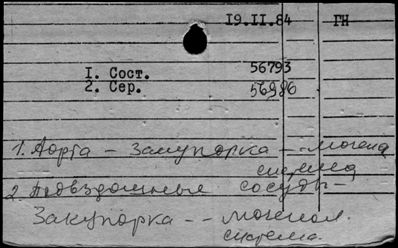 19.II.84 ГН
I. Сост. 56793
2. Сер. 56986
1. Аорта - Закупорка -
система
2. Подвздошные сосуды -
Закупорка - -
система